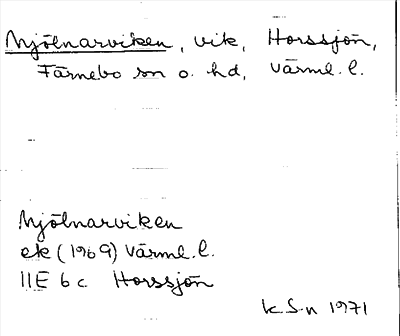 Mjölnarviken, vik, Horssjön,
Färnebo sn o. hd, Värml. l.
Mjölnarviken
ek (1969) Värml. l.
11E 6 c Horssjön
K. S-n 1971